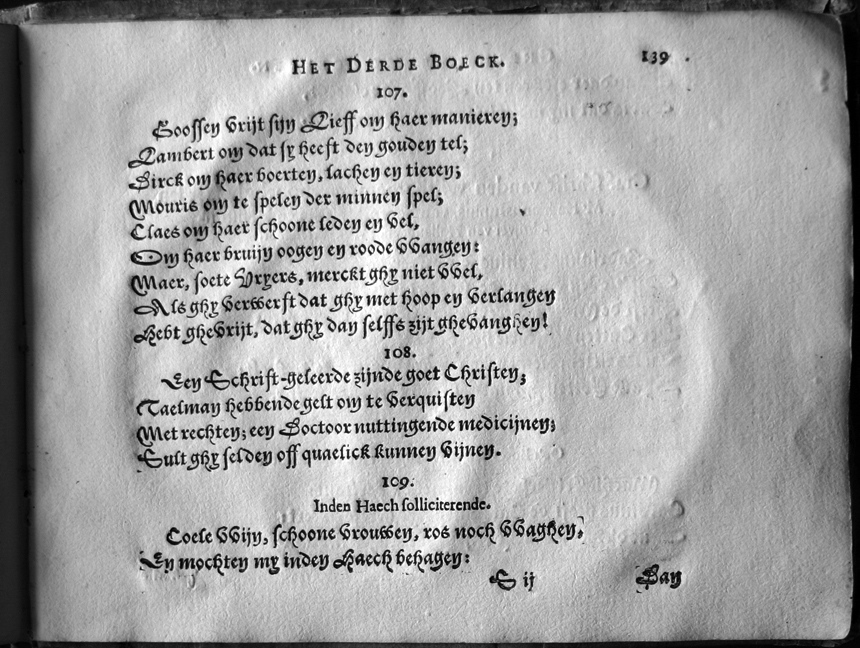 HET DERDE BOECK. 139
107.
Goossen vrijt sijn Lieff om haer manieren;
Lambert om dat sy heeft den gouden tel;
Dirck om haer boerten, lachen en tieren;
Mouris om te spelen der minnen spel;
Claes om haer schoone leden en vel,
Om haer bruijn oogen en roode VVangen:
Maer, soete Vryers, merckt ghy niet VVel,
Als ghy verwerft dat ghy met hoop en verlangen
Hebt ghevrijt, dat ghy dan selffs zijt ghevanghen!
108.
Een Schrift-geleerde zijnde goet Christen;
Taelman hebbende gelt om te verquisten
Met rechten; een Doctoor nuttingende medicijnen;
Sult ghy selden off quaelick kunnen vijnen.
109.
Inden Haech solliciterende.
Coele VVijn, schoone vrouwen, ros noch VVaghen,
En mochten my inden Haech behagen:
S ij Dan